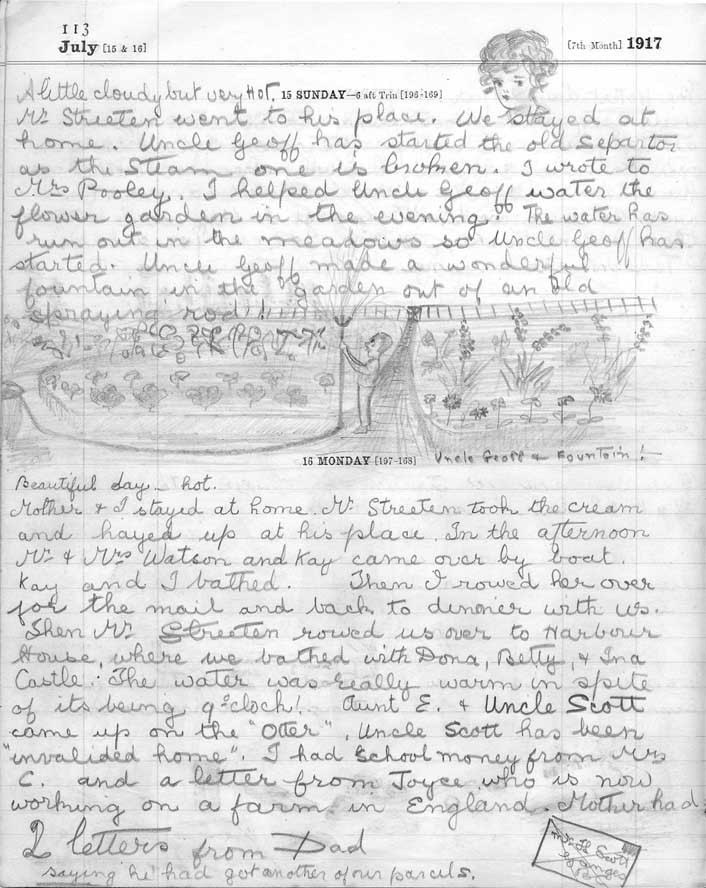 113
July [15 & 16] [7th Month] 1917
A little cloudy but very Hot. 15 SUNDAY—6 aft Trin [196-169]
Mr Streeten went to his place. We stayed at
home. Uncle Geoff has started the old separtor
as the Steam one is broken. I wrote to
Mrs Pooley. I helped Uncle Geoff water the
flower garden in the evening. The water has
run out in the meadows so Uncle Geoff has
started. Uncle Geoff made a wonderful
fountain in the garden out of an old
spraying rod!!
16 MONDAY [197-168] Uncle Geoff & Fountain!
Beautiful day. hot.
Mother & I stayed at home. Mr Streeten took the cream
and hayed up at his place. In the afternoon
Mr & Mrs Watson and Kay came over by boat.
Kay and I bathed. Then I rowed her over
for the mail and back to dinner with us.
Then Mr Streeten rowed us over to Harbour
House, where we bathed with Dona, Betty, & Ina
Castle. The water was really warm in spite
of its being 9 o'clock! Aunt E. & Uncle Scott
came up on the "Otter". Uncle Scott has been
"invalided home". I had school money from Mrs
C. and a letter from Joyce who is now
working on a farm in England. Mother had
2 letters from Dad
saying he had got another of our parcels.
Scott